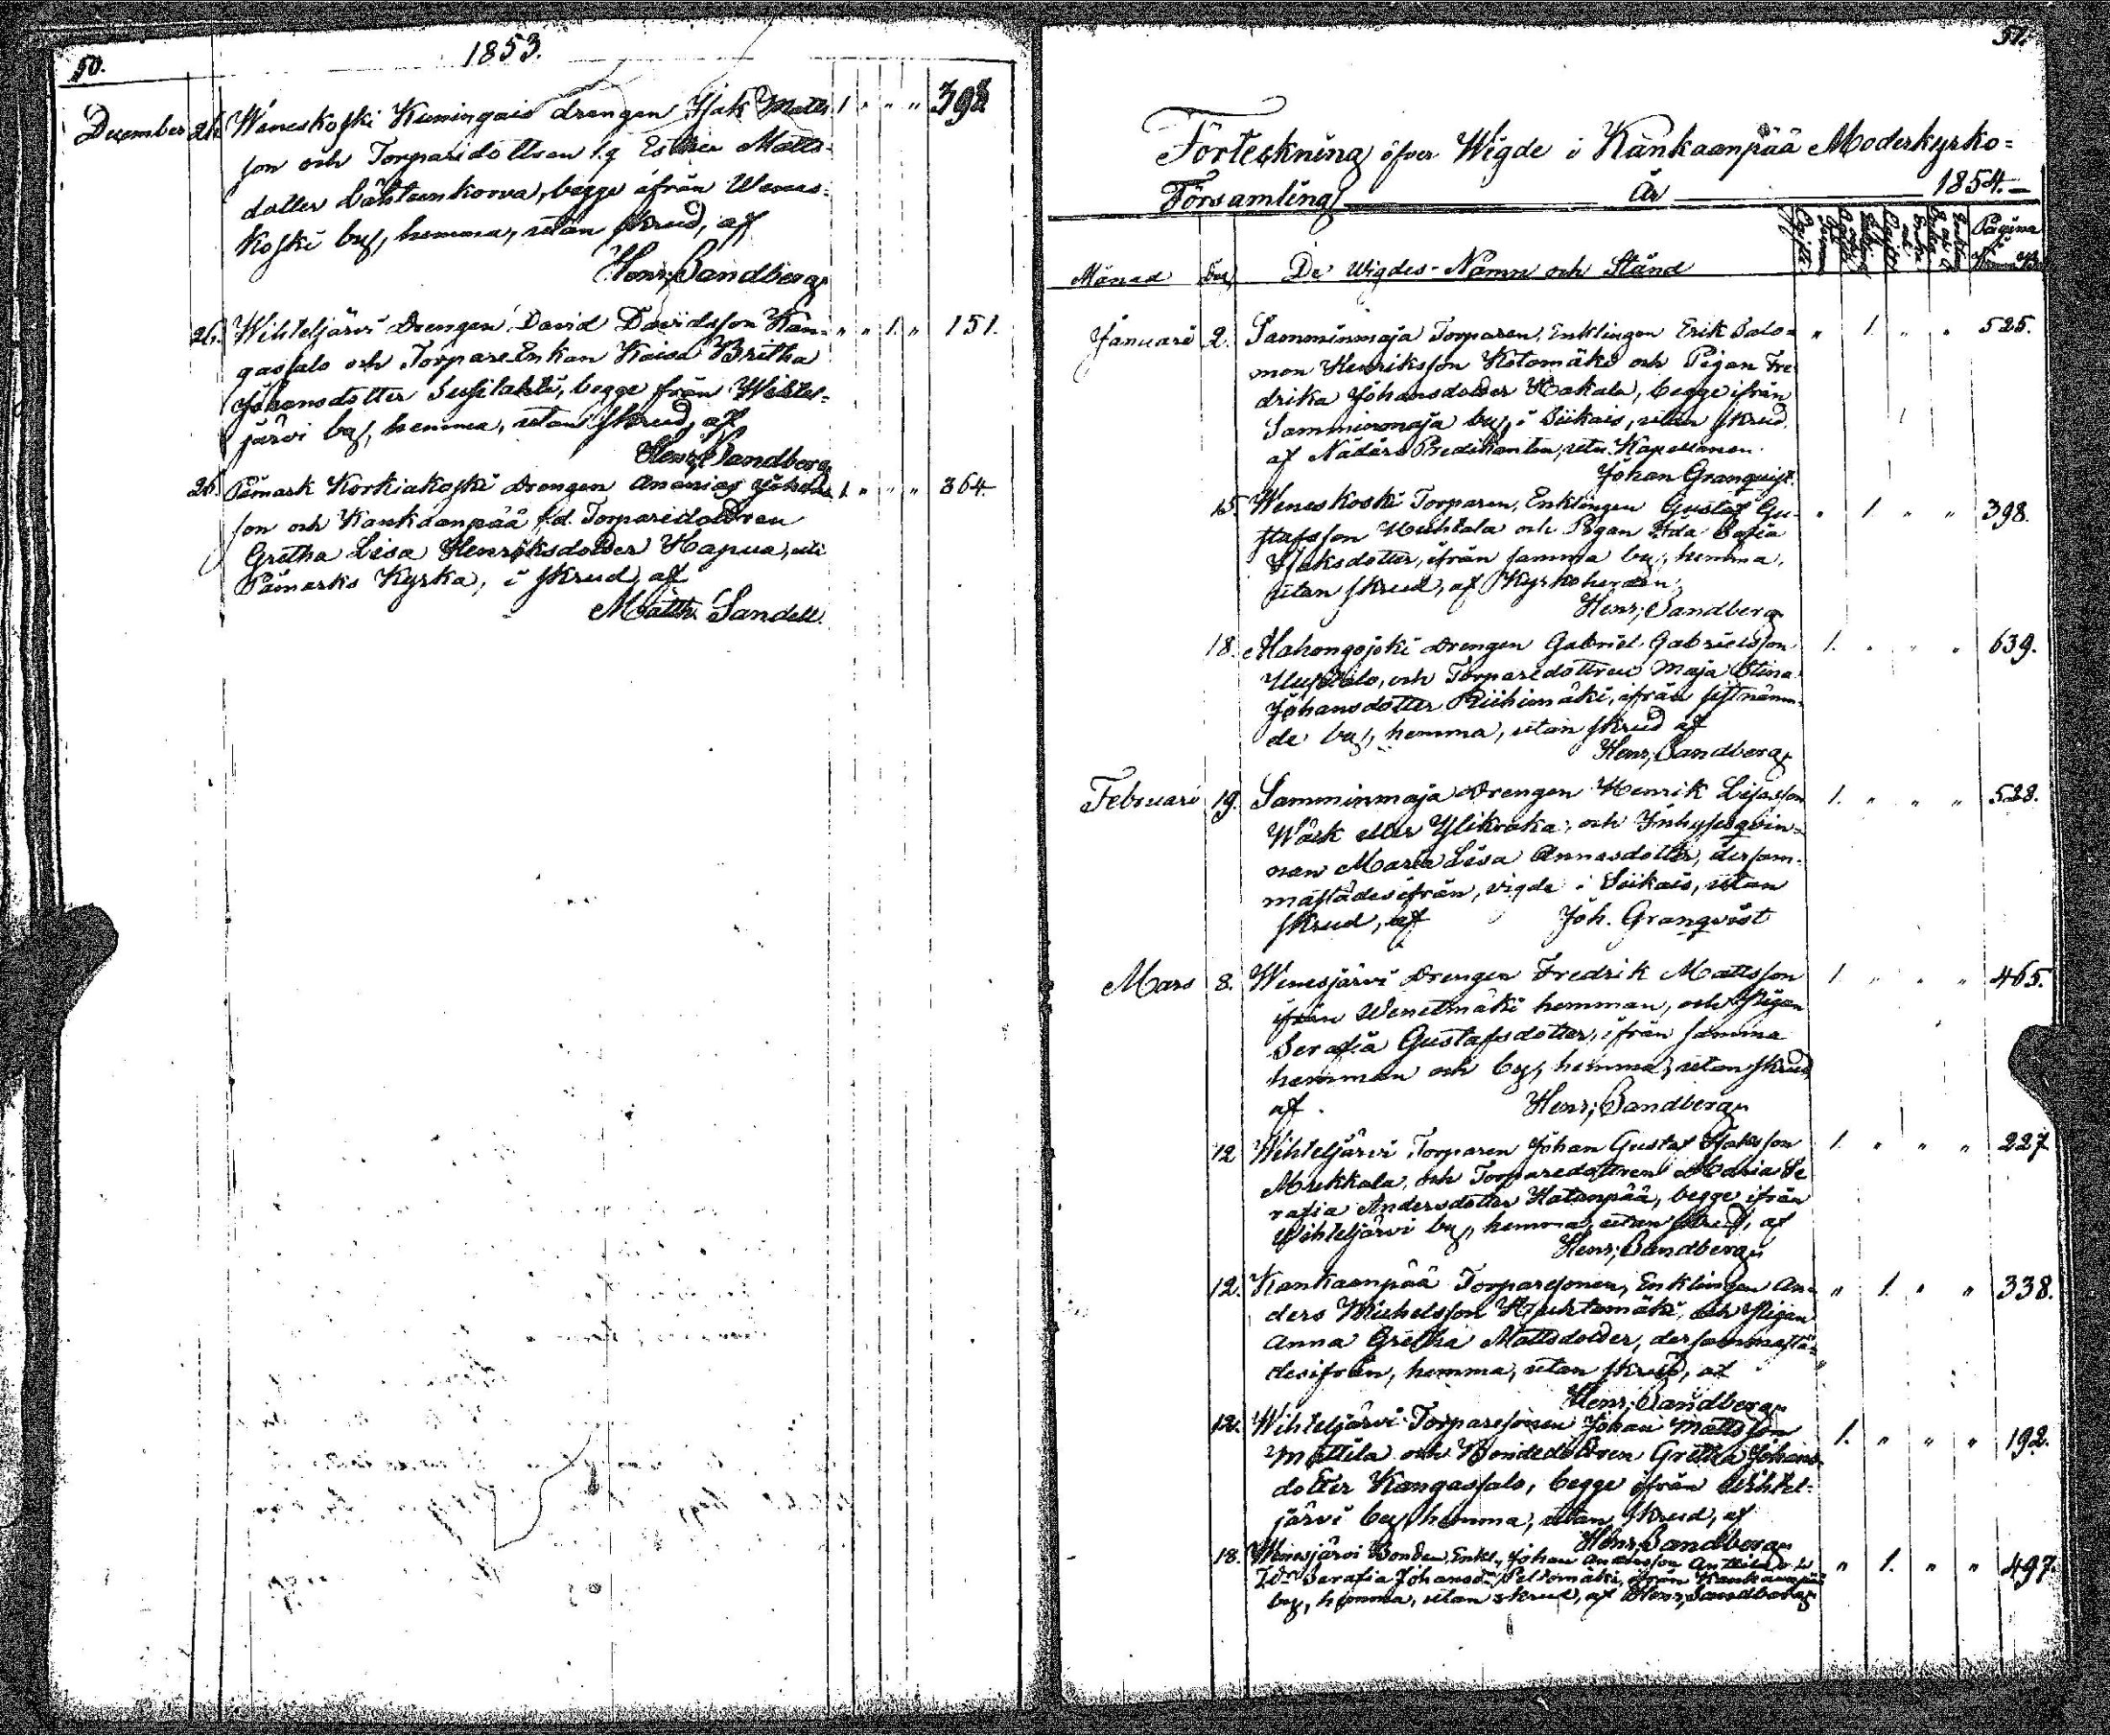 50.
1853.
December 26. Weneskoski Kuningais drengen Isak Matts- 1 " " " 398
son och Torparedottren s.q. Esther Matts-
dotter Lähteenkorva, begge ifrån Wenes-
koski by, hemma, utan skrud, af
Henr; Sandberg
26. Wihteljärvi Drengen David Davidsson Kan- " " 1. " 151.
gassalo och Torpare Enkan Kaisa Britha
Johansdotter Susilahti, begge från Wihtel-
järvi by, hemma, utan skrud, af
Henr; Sandberg
26. Påmark Korkiakoski Drengen Ananias Johans- 1. " " " 364.
son och Kankaanpää f.d. Torparedottren
Gretha Lisa Henriksdotter Hapua, uti
Påmarks Kyrka, i skrud, af
Matth. Sandell.
51.
Förteckning öfver Wigde i Kankaanpää Moderkyrko-
Församling År 1854.
Månad Dag De Wigdes-Namn och Stånd Pagina
Januari 2. Samminmaja Torparen, Enklingen Erik Salo- " 1. " " 525.
mon Henriksson Kotomäki och Pigan Fre-
drika Johansdotter Hakala, begge ifrån
Samminmaja by, i Siikais, utan skrud.
af Nådårs Predikanten, Kapellanen
Johan Granqvist.
15. Weneskoski Torparen, Enklingen Gustaf Gu- " 1. " " 398.
stafsson Huhtala och Pigan Ida Sofia
Isaksdotter, ifrån samma by, hemma,
utan skrud, af Kyrkoherden
Henr; Sandberg
18. Mahongojoki Drengen Gabriel Gabrielsson 1. " " " 639.
och Torparedottren Maja Stina
Johansdotter Riihimäki, ifrån sistnämn-
de by, hemma, utan skrud af
Henr; Sandberg
Februari 19. Samminmaja Drengen Henrik 1. " " " 528.
eller Ylikraka, och Inhyseqvin-
nan Maria Lisa Annasdotter, dersam-
mastädesifrån, vigde i Siikais, utan
skrud, af Joh. Granqvist
Mars 8. Wenesjärvi Drengen Fredrik Mattsson 1. " " " 465.
ifrån Wenetmäki hemman, och Pigan
Serafia Gustafsdotter, ifrån samma
hemman och by, hemma, utan skrud,
af Henr; Sandberg
12 Wihteljärvi Torparen Johan Gustaf Isaksson 1. " " " 227
Mukkala, och Torparedottren Maria Se
rafia Andersdotter Hatanpää, begge ifrån
Wihteljärvi by, hemma, utan skrud, af
Henr; Sandberg
12. Kankaanpää Torparesonen, Enklingen An- " 1. " " 338.
ders Michelsson Huhtamäki, och Pigan
Anna Gretha Mattsdotter, dersammastä-
desifrån, hemma, utan skrud, af
Henr; Sandberg
12. Wihteljärvi Torparesonen Johan Mattsson 1. " " " 192.
Mattila och Bondedottren Gretha Johans-
dotter Kangassalo, begge ifrån Wihtel-
järvi by, hemma, utan skrud, af
Henr; Sandberg
18. Wenesjärvi Bonden, Enkl., Johan Andersson Anttila o " 1. " " 497.
Serafia Johansdr Peltomäki, ifrån Kankaanpää
by, hemma, utan skrud, af Henr; Sandberg